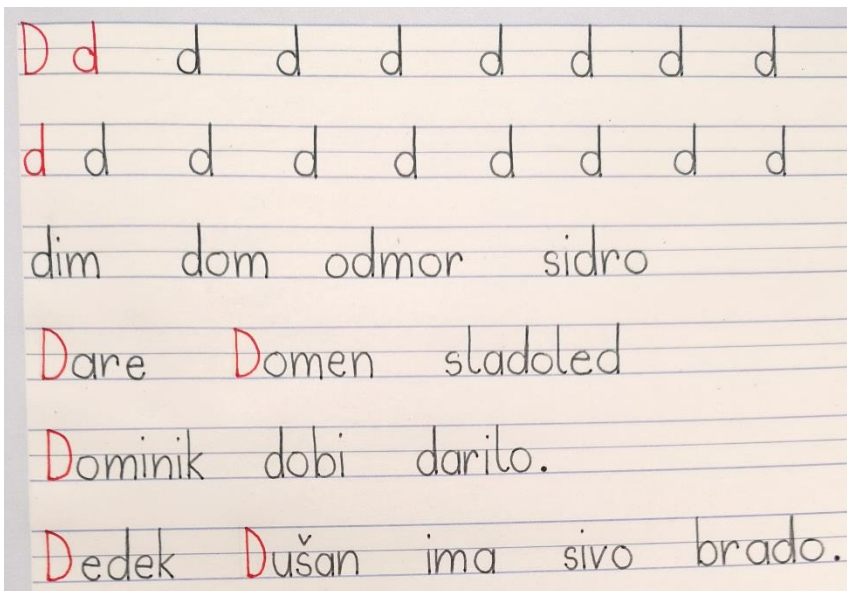 D d d d d d d d d
d d d d d d d d d
dim dom odmor sidro
Dare Domen sladoled
Dominik dobi darilo.
Dedek Dušan ima sivo brado.